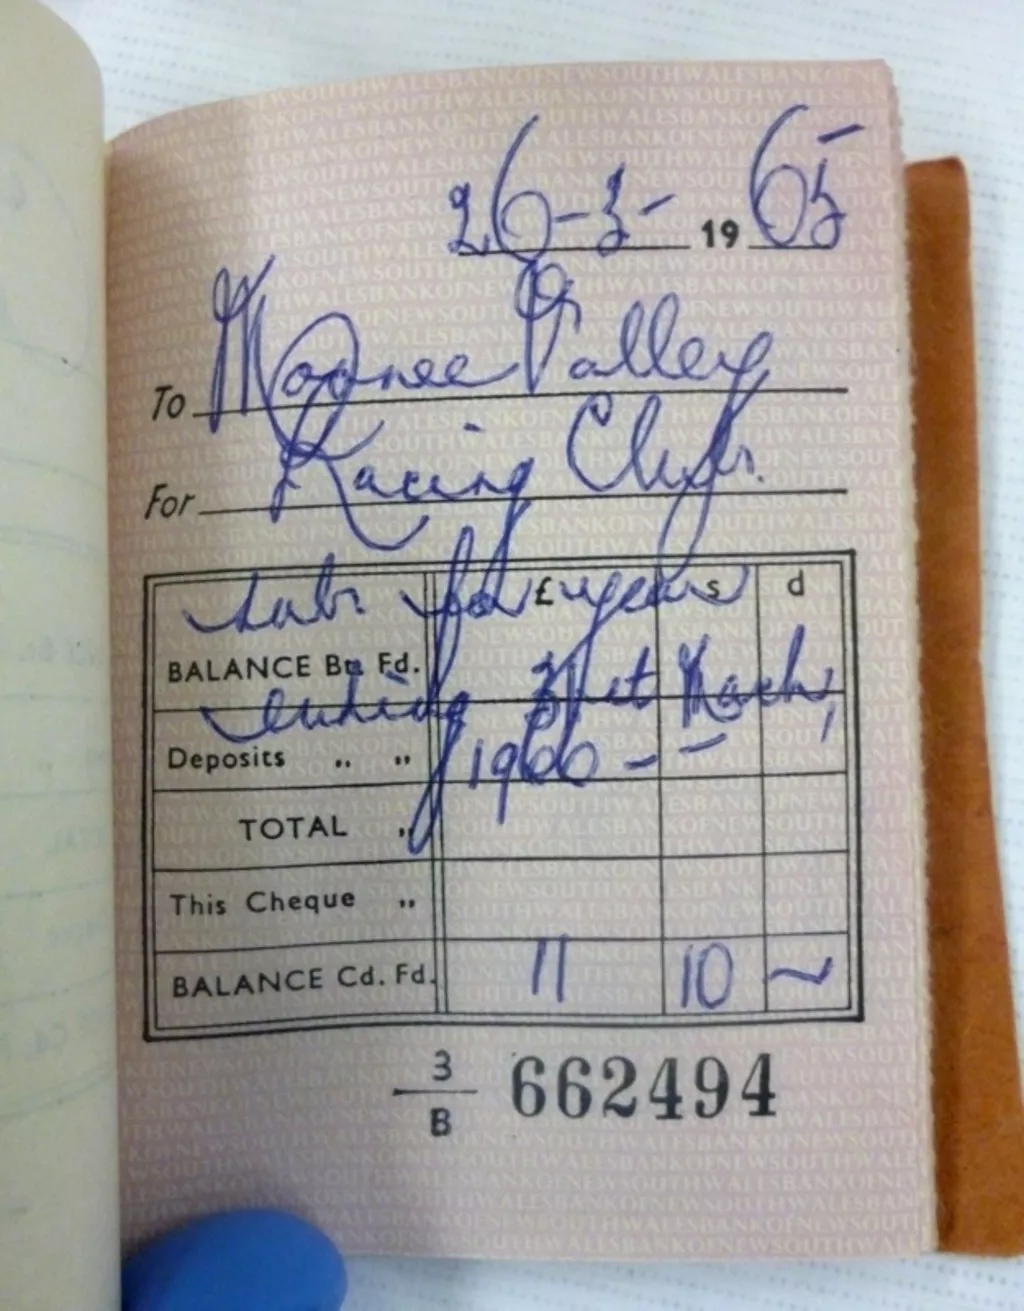 26-3- 1965
To Moonee Valley
For Racing Club.
subs for year
£ s d
BALANCE Bt. Fd.
ending 31st March,
Deposits " " 1966 - -
TOTAL "
This Cheque "
BALANCE Cd. Fd. 11 10 ~
3/B 662494